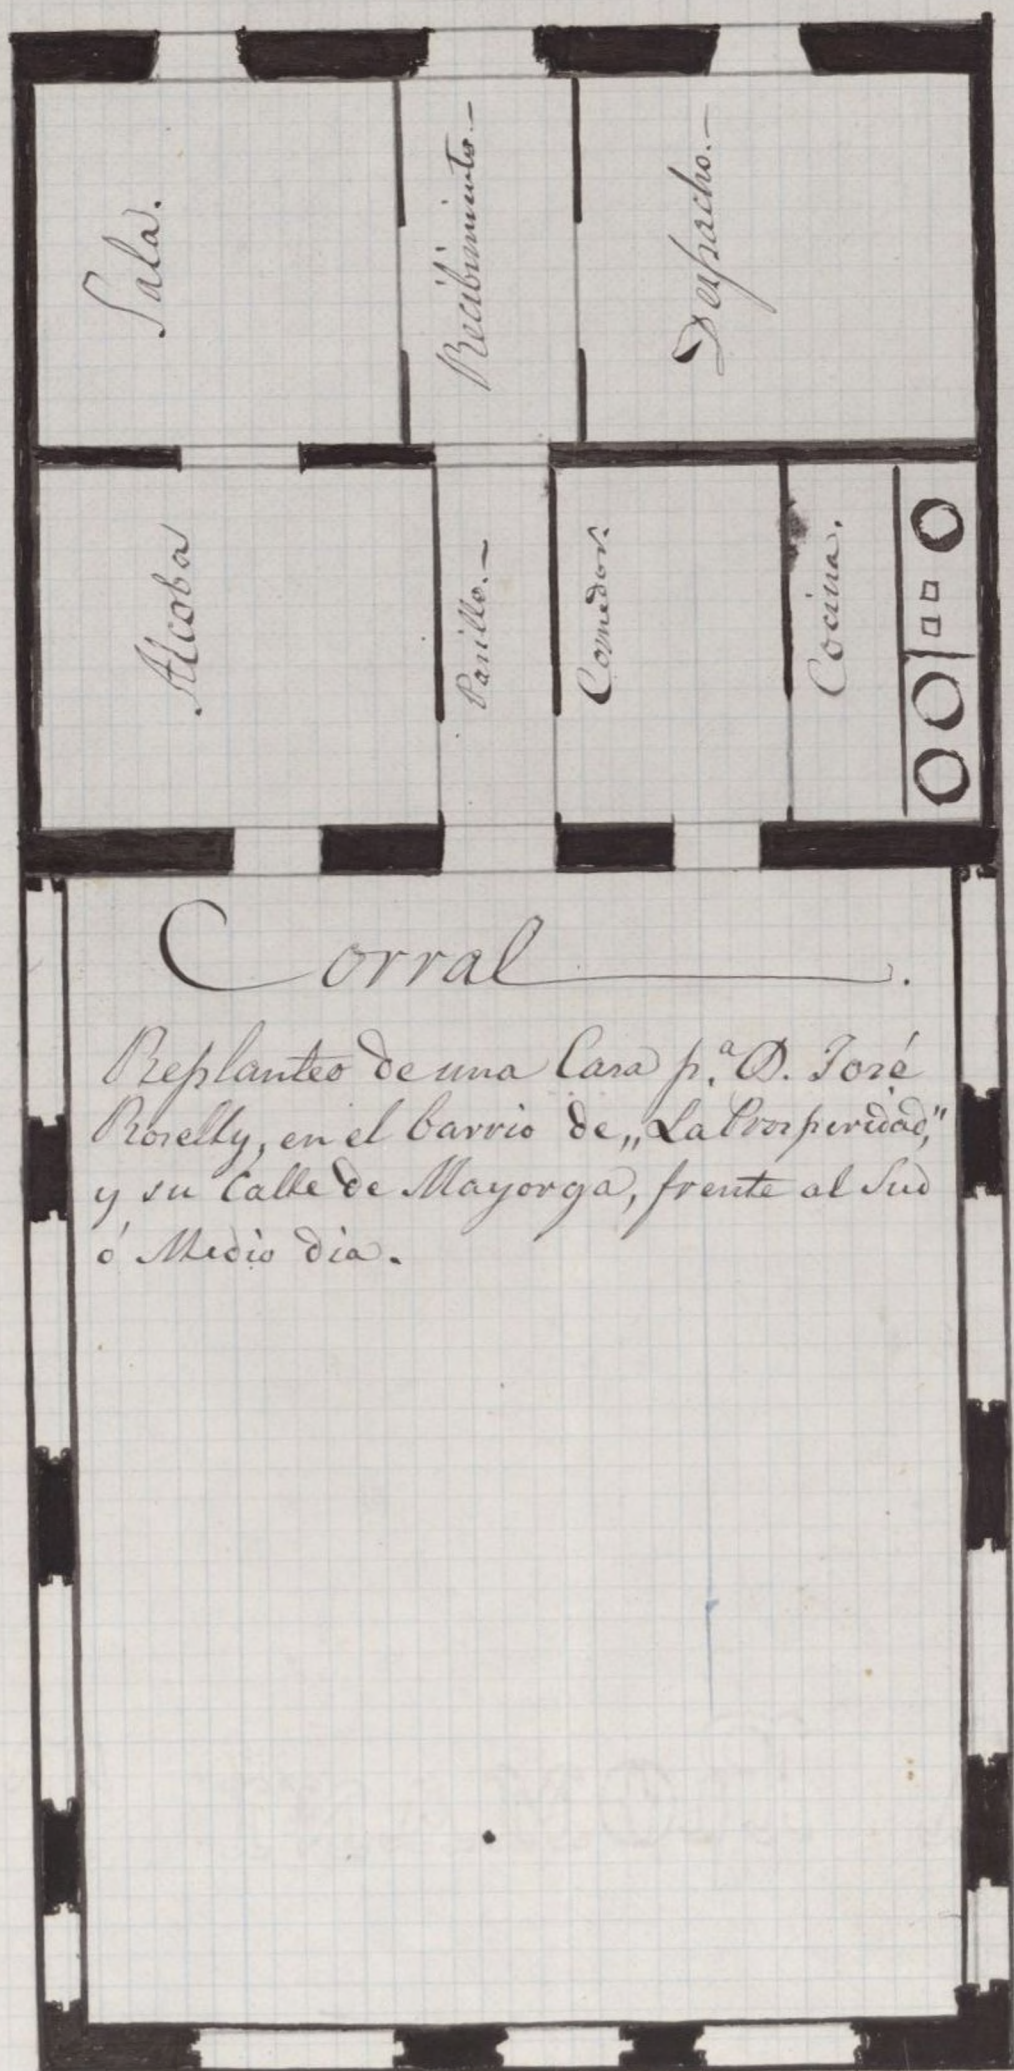 Sala.
Recibimiento.—
Despacho.—
Alcoba
Pasillo.—
Comedor.
Cocina.
Corral.
Replanteo de una Casa p.ª D. José
Roselly, en el barrio de „La Prosperidad,"
y su Calle de Mayorga, frente al Sud
ó Medio dia.